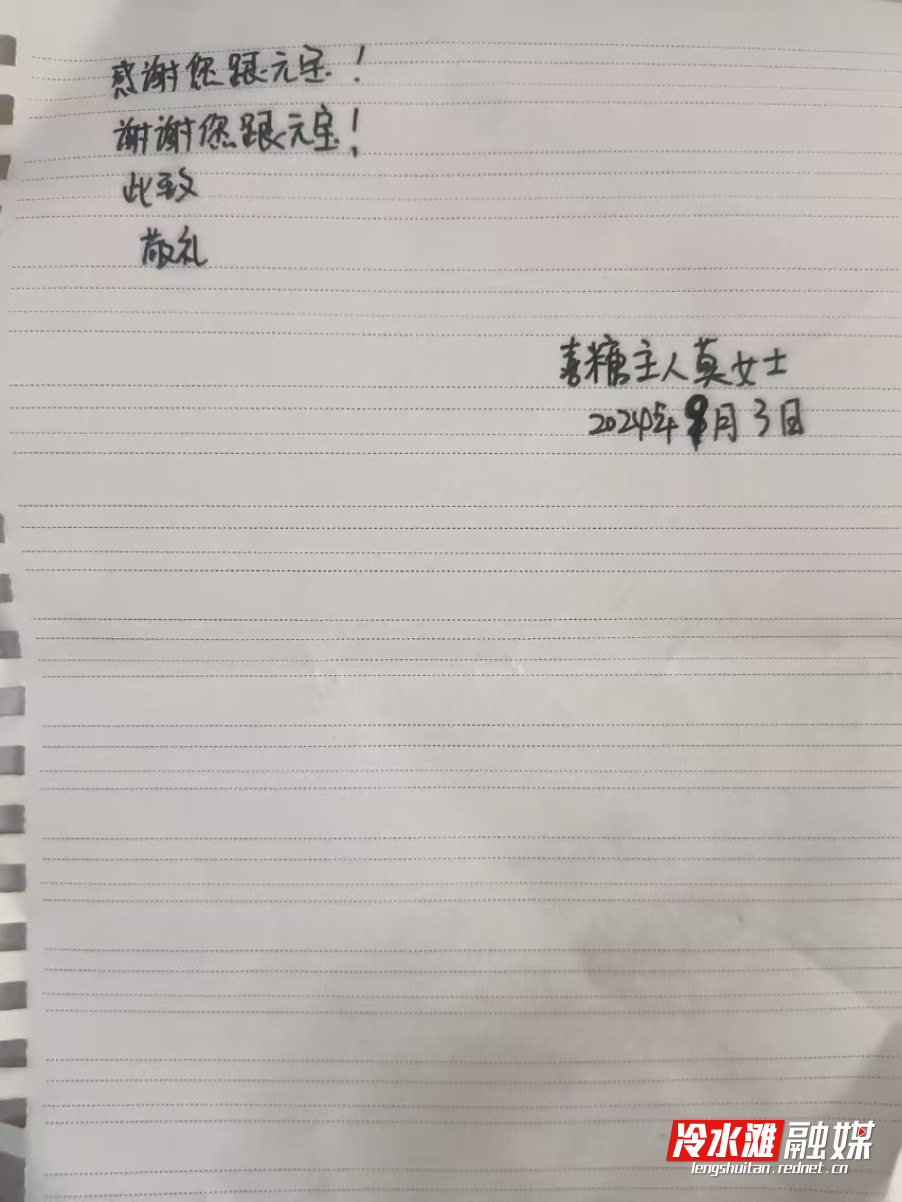 感谢您跟元宝！
谢谢您跟元宝！
此致
敬礼
喜糖主人莫女士
2024年9月3日
冷水滩融媒
lengshuitan.rednet.cn